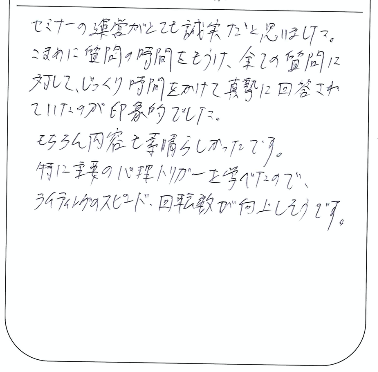 セミナーの運営がとても誠実だと思いました。
こまめに質問の時間をもうけ、全ての質問に
対して、じっくり時間をかけて真摯に回答され
ていたのが印象的でした。
もちろん内容も素晴らしかったです。
特に主要の心理トリガーを学べたので、
ライティングのスピード、回転数が向上しそうです。